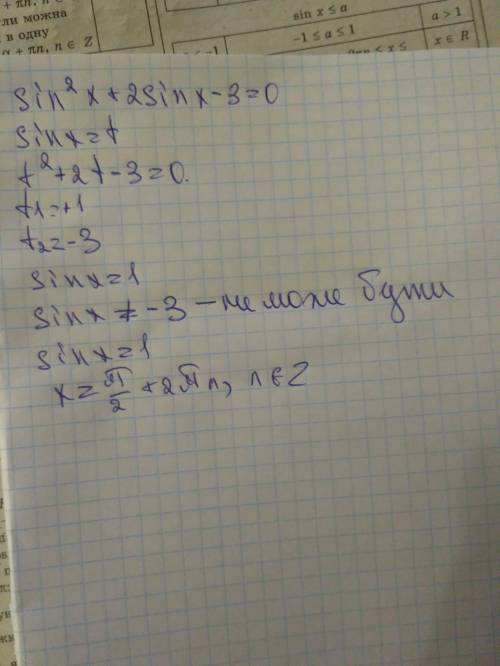 + πn, n ∈
ли можна
в одну
α + πn, n ∈ Z
sin x ≤ a
-1 ≤ a ≤ 1
a > 1
x ∈ R
sin²x+2sinx-3=0
sinx=t
t²+2t-3=0.
t1=+1
t2=-3
sinx=1
sinx≠-3 - не може бути
sinx=1
x=π/2+2πn, n∈Z